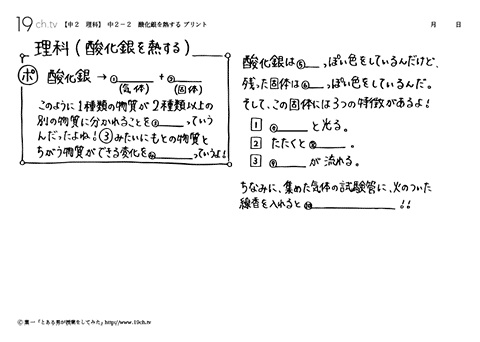 19ch.tv 【中2 理科】 中2-2 酸化銀を熱する プリント 月 日
理科(酸化銀を熱する)
ポ 酸化銀 → ①______ + ②______
(気体) (固体)
このように1種類の物質が2種類以上の
別の物質に分かれることを③______っていう
んだったよね!③みたいにもとの物質と
ちがう物質ができる変化を④______っていうよ!
酸化銀は⑤____っぽい色をしているんだけど、
残った固体は⑥____っぽい色をしているんだ。
そして、この固体には3つの特徴があるよ!
1 ⑦______と光る。
2 たたくと⑧______。
3 ⑨______が流れる。
ちなみに、集めた気体の試験管に、火のついた
線香を入れると⑩____________!!
© 葉一「とある男が授業をしてみた」http://www.19ch.tv